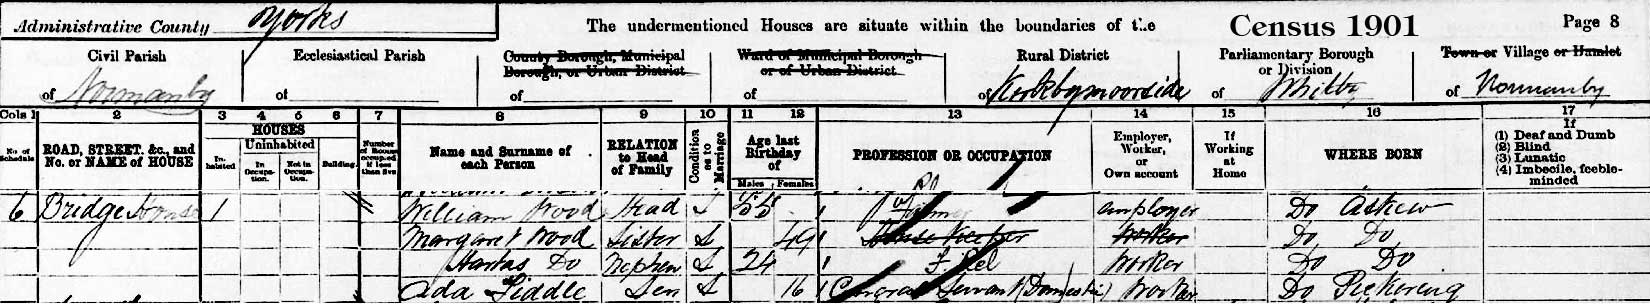 Administrative County Yorks
The undermentioned Houses are situate within the boundaries of the
Census 1901
Page 8
Civil Parish
of Normanby
Ecclesiastical Parish
of
County Borough, Municipal
Borough, or Urban District
of
Ward of Municipal Borough
or of Urban District
of
Rural District
of Kirkbymoorside
Parliamentary Borough
or Division
of Whitby
Town or Village or Hamlet
of Normanby
Cols 1 2 3 4 5 6 7 8 9 10 11 12 13 14 15 16 17
No. of Schedule
ROAD, STREET, &c., and
No. or NAME of HOUSE
HOUSES
Inhabited
Uninhabited
In Occupation.
Not in Occupation.
Building.
Number of Rooms occupied if less than five
Name and Surname of
each Person
RELATION
to Head
of Family
Condition as to Marriage
Age last
Birthday
of
Males Females
PROFESSION OR OCCUPATION
Employer,
Worker,
or
Own account
If
Working
at
Home
WHERE BORN
If
(1) Deaf and Dumb
(2) Blind
(3) Lunatic
(4) Imbecile, feeble-
minded
6 Bridge House 1 William Wood Head S 55 Farmer employer Do Askew
Margaret Wood Sister S 49 House Keeper Worker Do Do
Do Nephew S 24 Worker Do Do
Ada Liddle Ser S 16 General Servant (Domestic) Worker Do Pickering